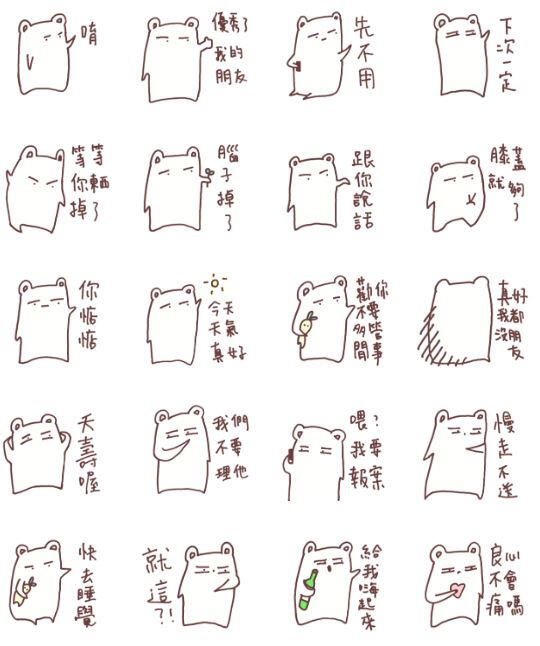 唷
優秀了
我的
朋友
先不用
下次一定
等等
你東西
掉了
腦子掉了
跟你說話
膝蓋
就夠了
你惦惦
今天
天氣
真好
勸你
不要
多管
閒事
真好
我都
沒朋友
夭壽喔
我們
不要
理他
喂?
我要
報案
慢走不送
快去睡覺
就這?!
給我嗨起來
良心
不會
痛嗎